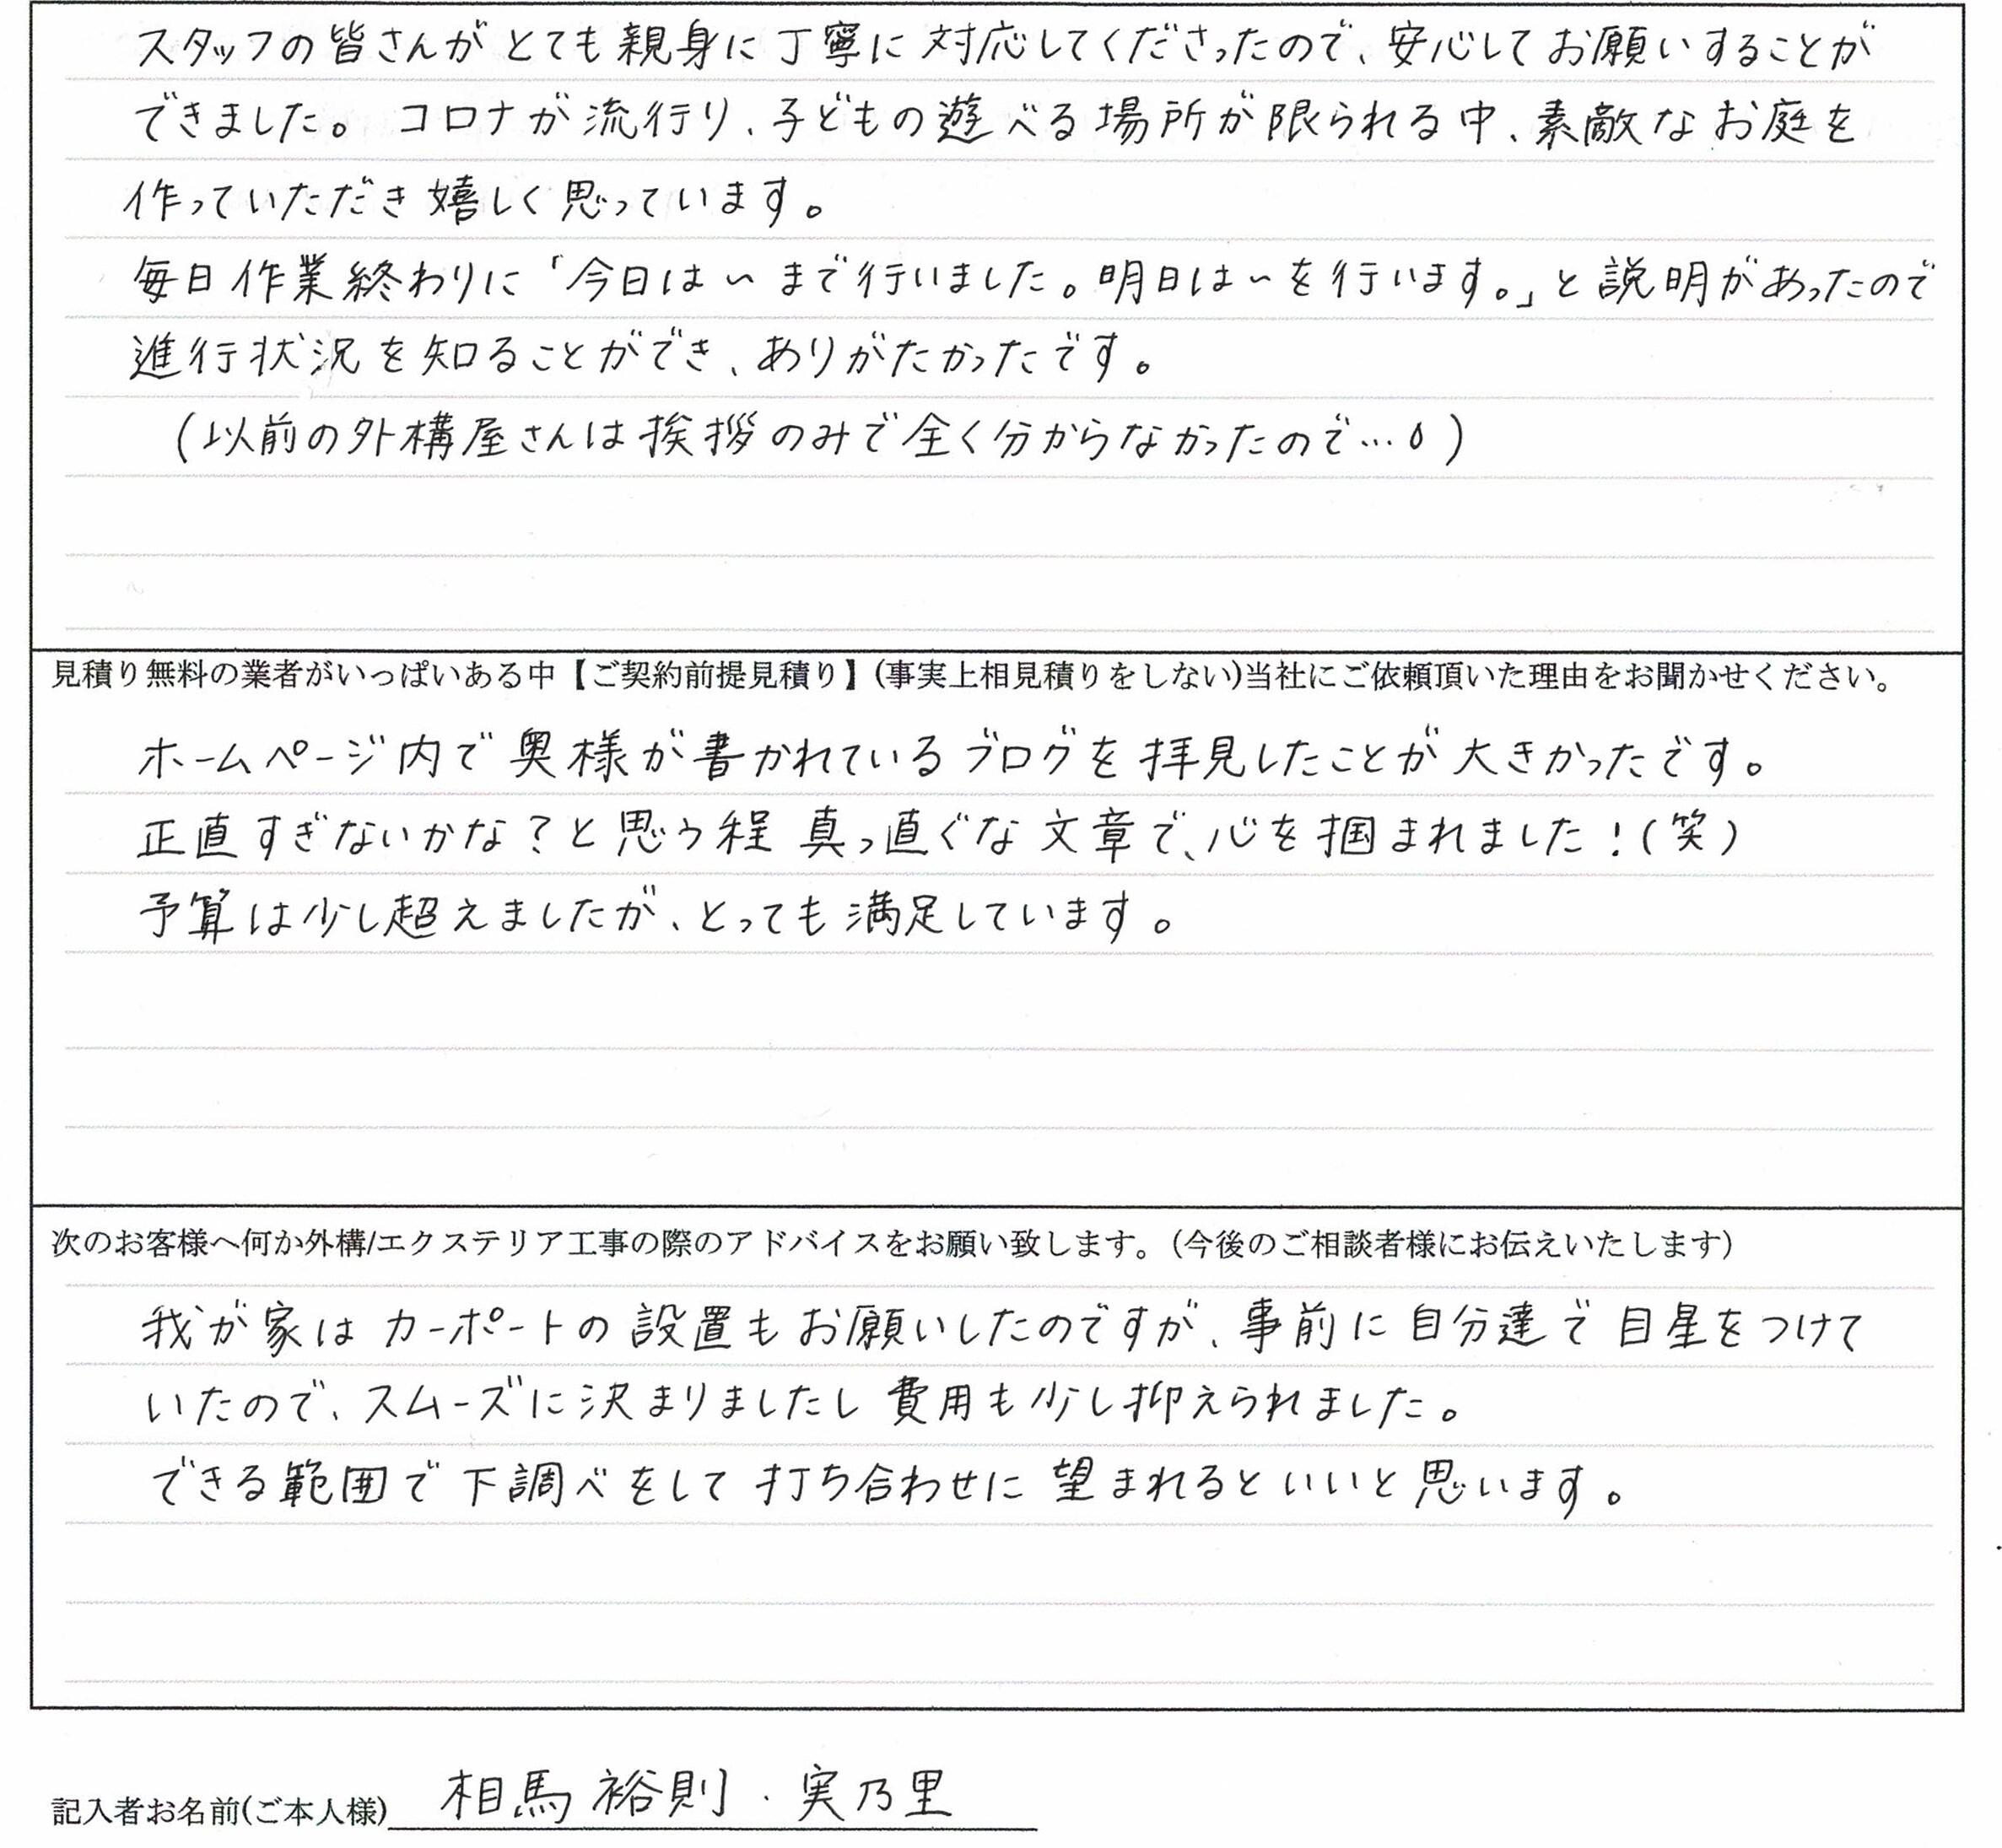 スタッフの皆さんがとても親身に丁寧に対応してくださったので、安心してお願いすることが
できました。コロナが流行り、子どもの遊べる場所が限られる中、素敵なお庭を
作っていただき嬉しく思っています。
毎日作業終わりに「今日は〜まで行いました。明日は〜を行います。」と説明があったので
進行状況を知ることができ、ありがたかったです。
(以前の外構屋さんは挨拶のみで全く分からなかったので…)
見積り無料の業者がいっぱいある中【ご契約前提見積り】(事実上相見積りをしない)当社にご依頼頂いた理由をお聞かせください。
ホームページ内で奥様が書かれているブログを拝見したことが大きかったです。
正直すぎないかな？と思う程真っ直ぐな文章で、心を掴まれました！(笑)
予算は少し超えましたが、とっても満足しています。
次のお客様へ何か外構/エクステリア工事の際のアドバイスをお願い致します。(今後のご相談者様にお伝えいたします)
我が家はカーポートの設置もお願いしたのですが、事前に自分達で目星をつけて
いたので、スムーズに決まりましたし費用も少し抑えられました。
できる範囲で下調べをして打ち合わせに望まれるといいと思います。
記入者お名前(ご本人様) 相馬裕則・実乃里